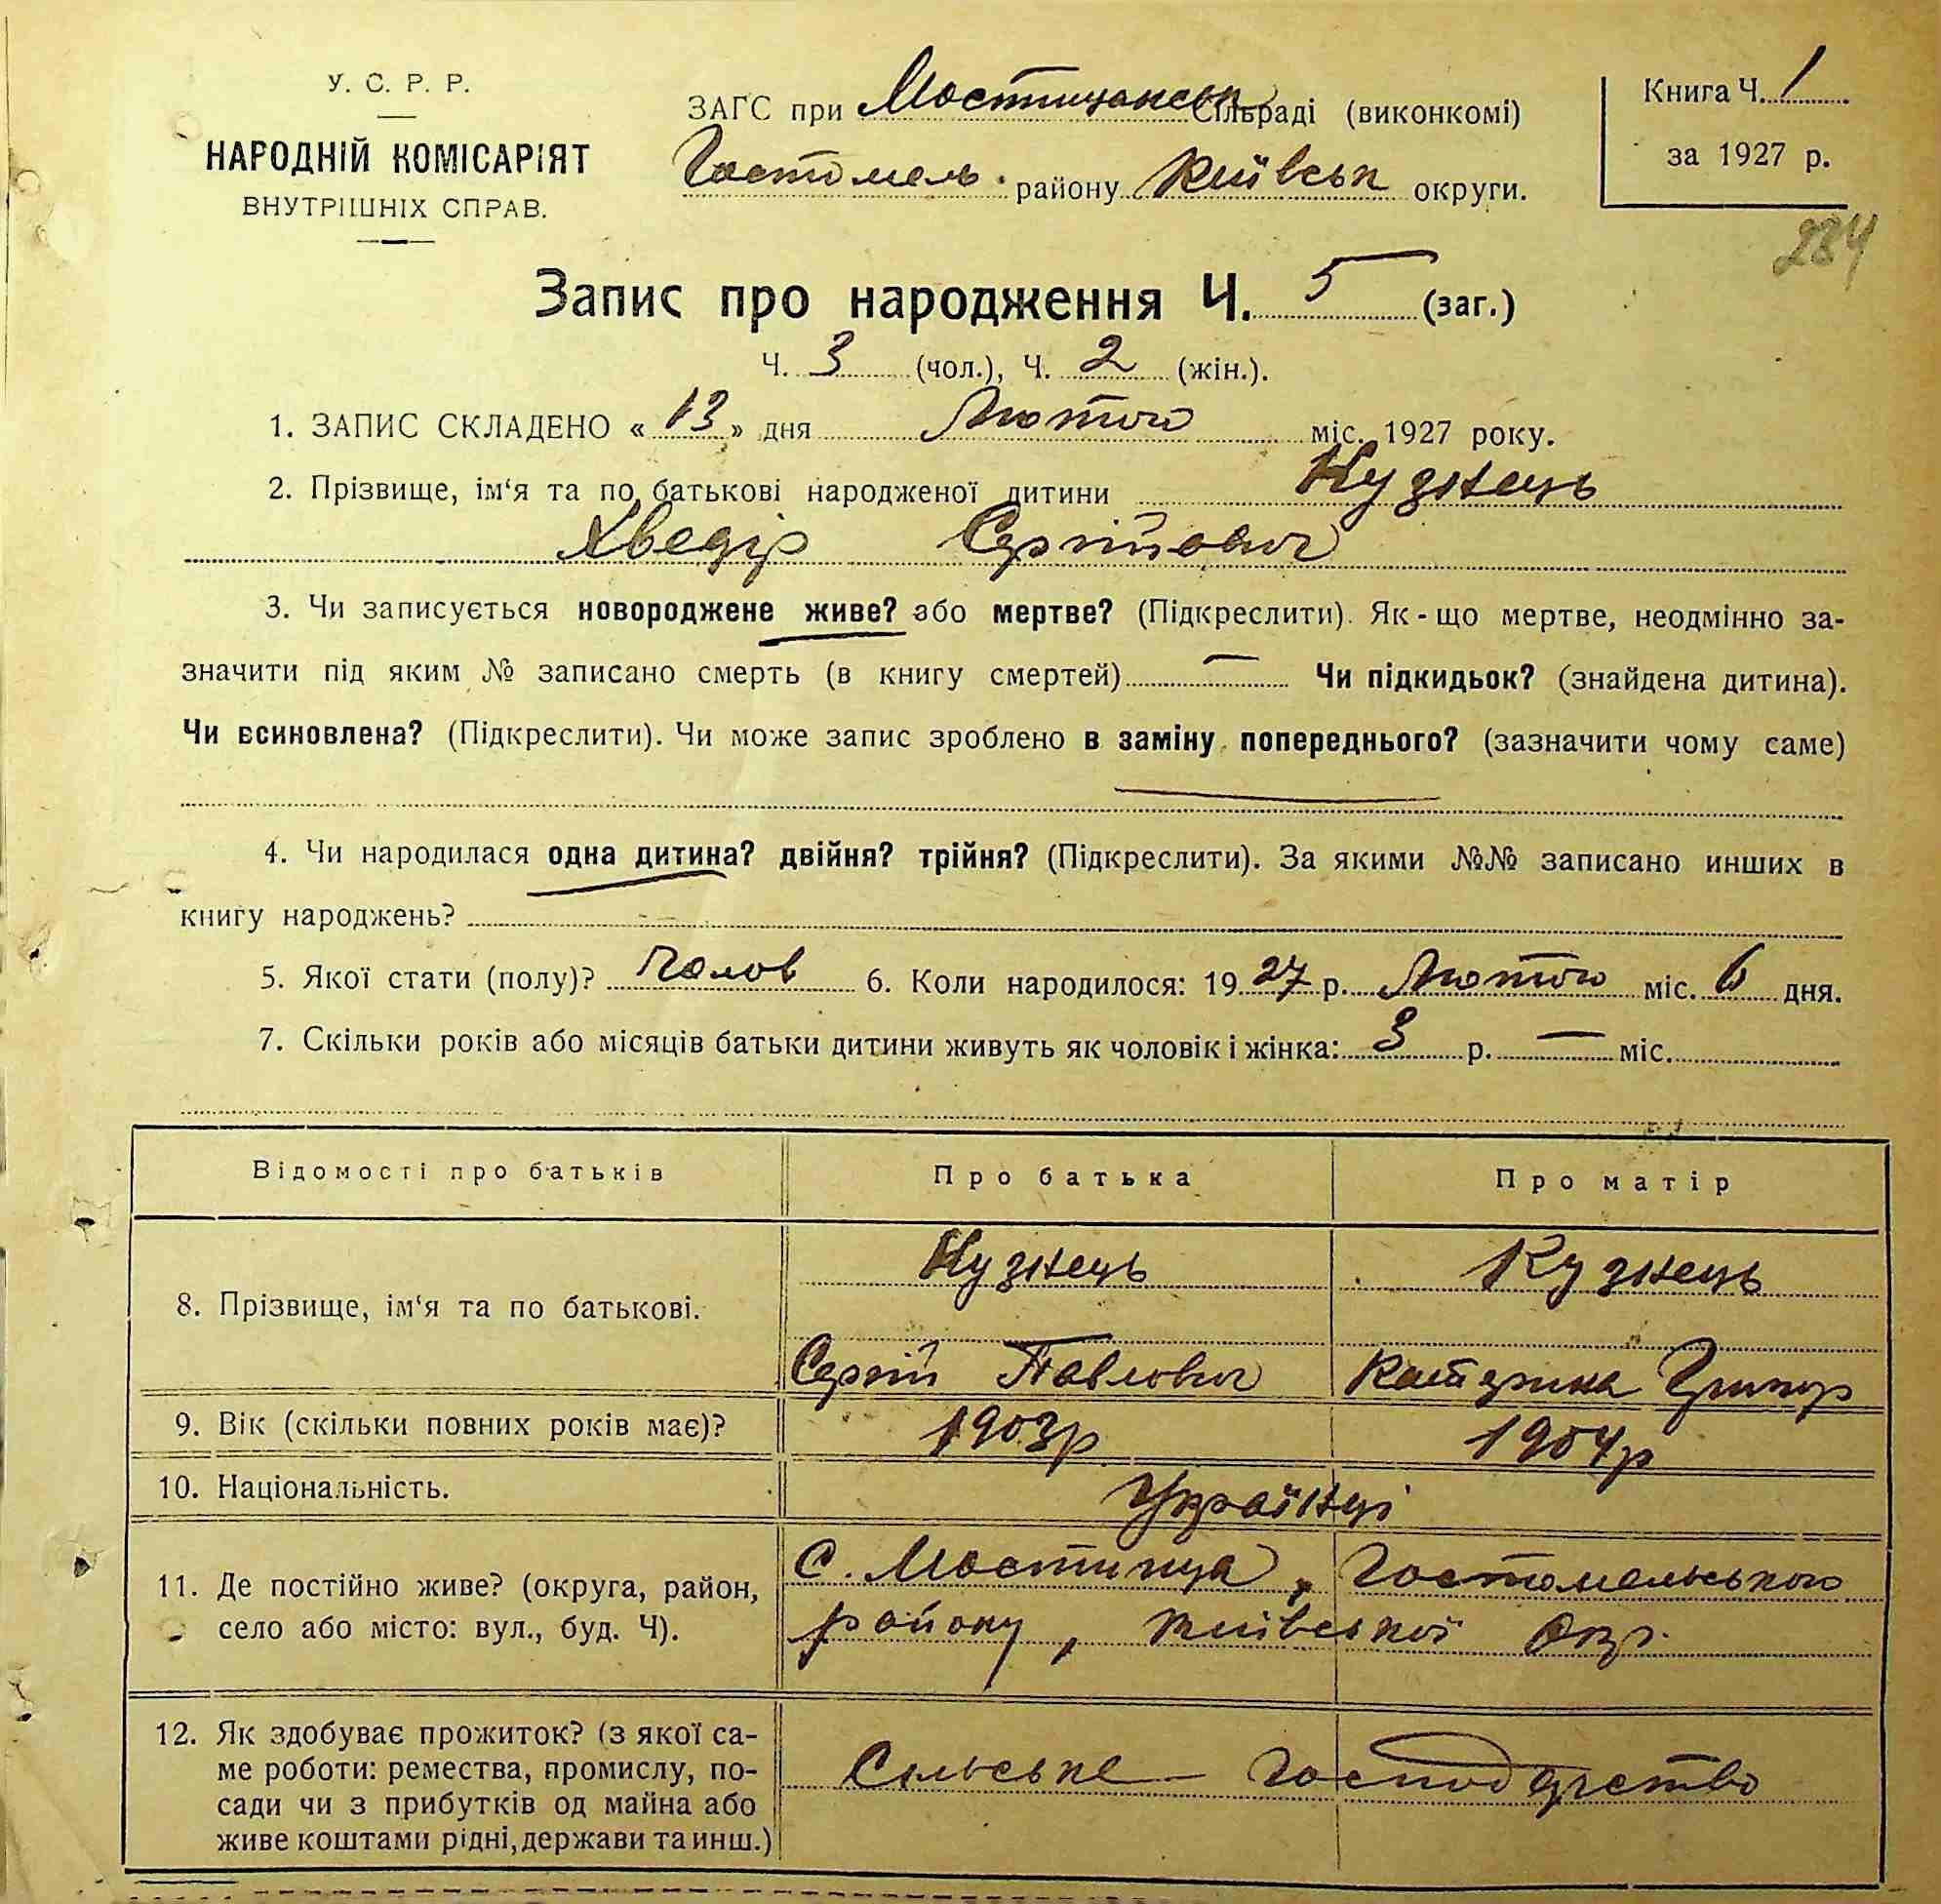 У. С. Р. Р.
НАРОДНІЙ КОМІСАРІЯТ
ВНУТРІШНІХ СПРАВ.
ЗАГС при Мостищанськ Сільраді (виконкомі)
Гостомель району Київськ округи.
Книга Ч. 1
за 1927 р.
284
Запис про народження Ч. 5 (заг.)
Ч. 3 (чол.), Ч. 2 (жін.).
1. ЗАПИС СКЛАДЕНО « 13 » дня Лютого міс. 1927 року.
2. Прізвище, ім‘я та по батькові народженої дитини Кузнець
Хведір Сергійович
3. Чи записується новороджене живе? або мертве? (Підкреслити). Як-що мертве, неодмінно за-
значити під яким № записано смерть (в книгу смертей) — Чи підкидьок? (знайдена дитина).
Чи всиновлена? (Підкреслити). Чи може запис зроблено в заміну попереднього? (зазначити чому саме)
4. Чи народилася одна дитина? двійня? трійня? (Підкреслити). За якими №№ записано инших в
книгу народжень?
5. Якої стати (полу)? Чолов 6. Коли народилося: 1927 р. Лютого міс. 6 дня.
7. Скільки років або місяців батьки дитини живуть як чоловік і жінка: 3 р. — міс.
Відомості про батьків Про батька Про матір
8. Прізвище, ім‘я та по батькові.
Кузнець Кузнець
Сергій Павлович Катерина Григор
9. Вік (скільки повних років має)? 1903р 1904р
10. Національність. Українці
11. Де постійно живе? (округа, район,
село або місто: вул., буд. Ч).
С. Мостища, Гостомельського
району, Київської Окр.
12. Як здобуває прожиток? (з якої са-
ме роботи: ремества, промислу, по-
сади чи з прибутків од майна або
живе коштами рідні, держави та инш.)
Сільське - Господарство